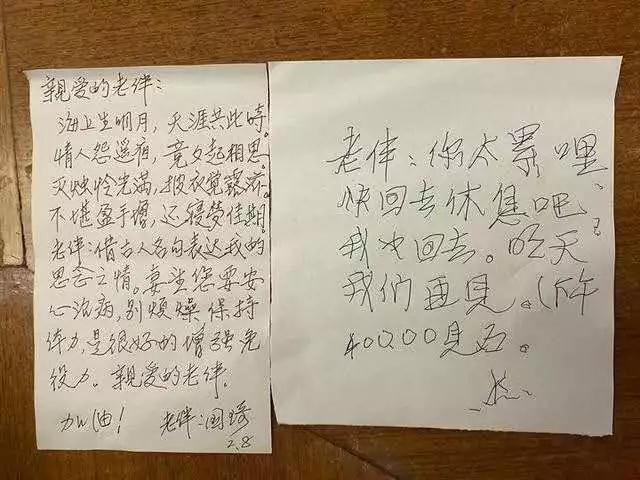 親爱的老伴：
海上生明月，天涯共此時。
情人怨遥夜，竟夕起相思
灭烛怜光满，披衣覚露滋。
不堪盈手赠，还寝夢佳期。
老伴：借古人名句表达我的
思念之情。妻望您要安
心治病，别煩燥 保持
体力，是很好的增强免
役力。親爱的老伴，
加油！ 老伴：国琦
2.8
老伴：你太累哩，
快回去休息吧，
我也回去。明天
我们再見。（下午
400:00見面。